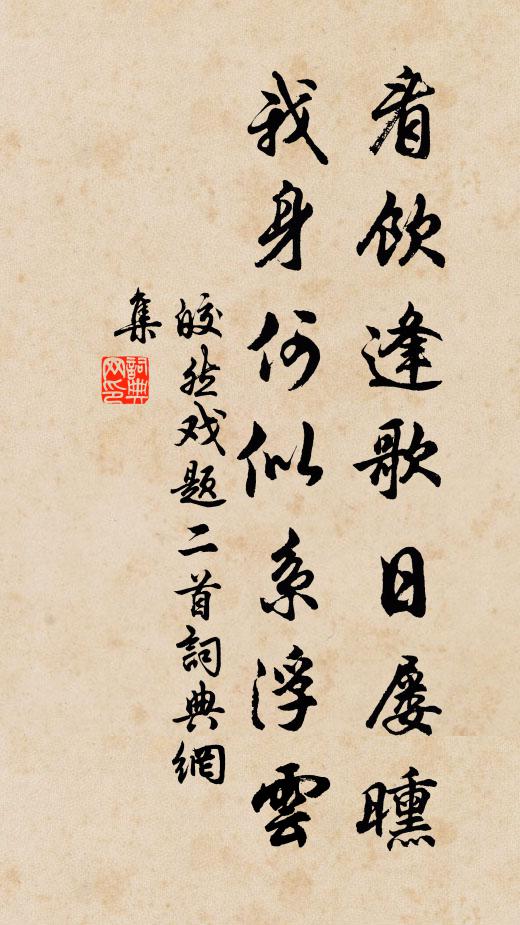 看饮逢歌日屡曛
我身何似系浮雲
皎然戏题二首詞典網
集
詞典网印